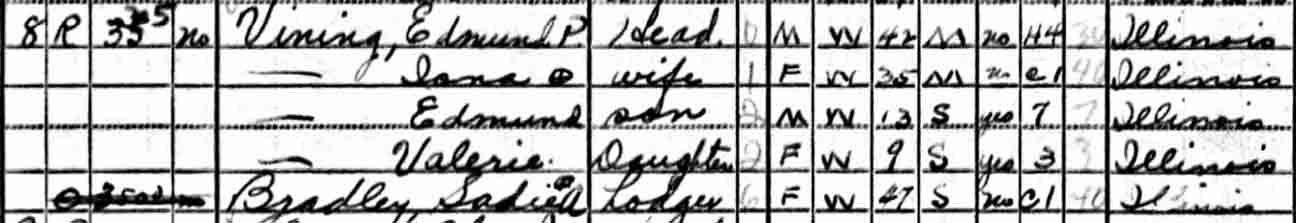 8 R 35 no Vining, Edmund P. Head. 0 M W 42 M no H4 30 Illinois
— Iona wife 1 F W 35 M no C1 40 Illinois
— Edmund son 2 M W 13 S yes 7 7 Illinois
— Valerie. Daughter 2 F W 9 S yes 3 3 Illinois
Bradley Sadie A Lodger 6 F W 47 S no C1 40 Illinois